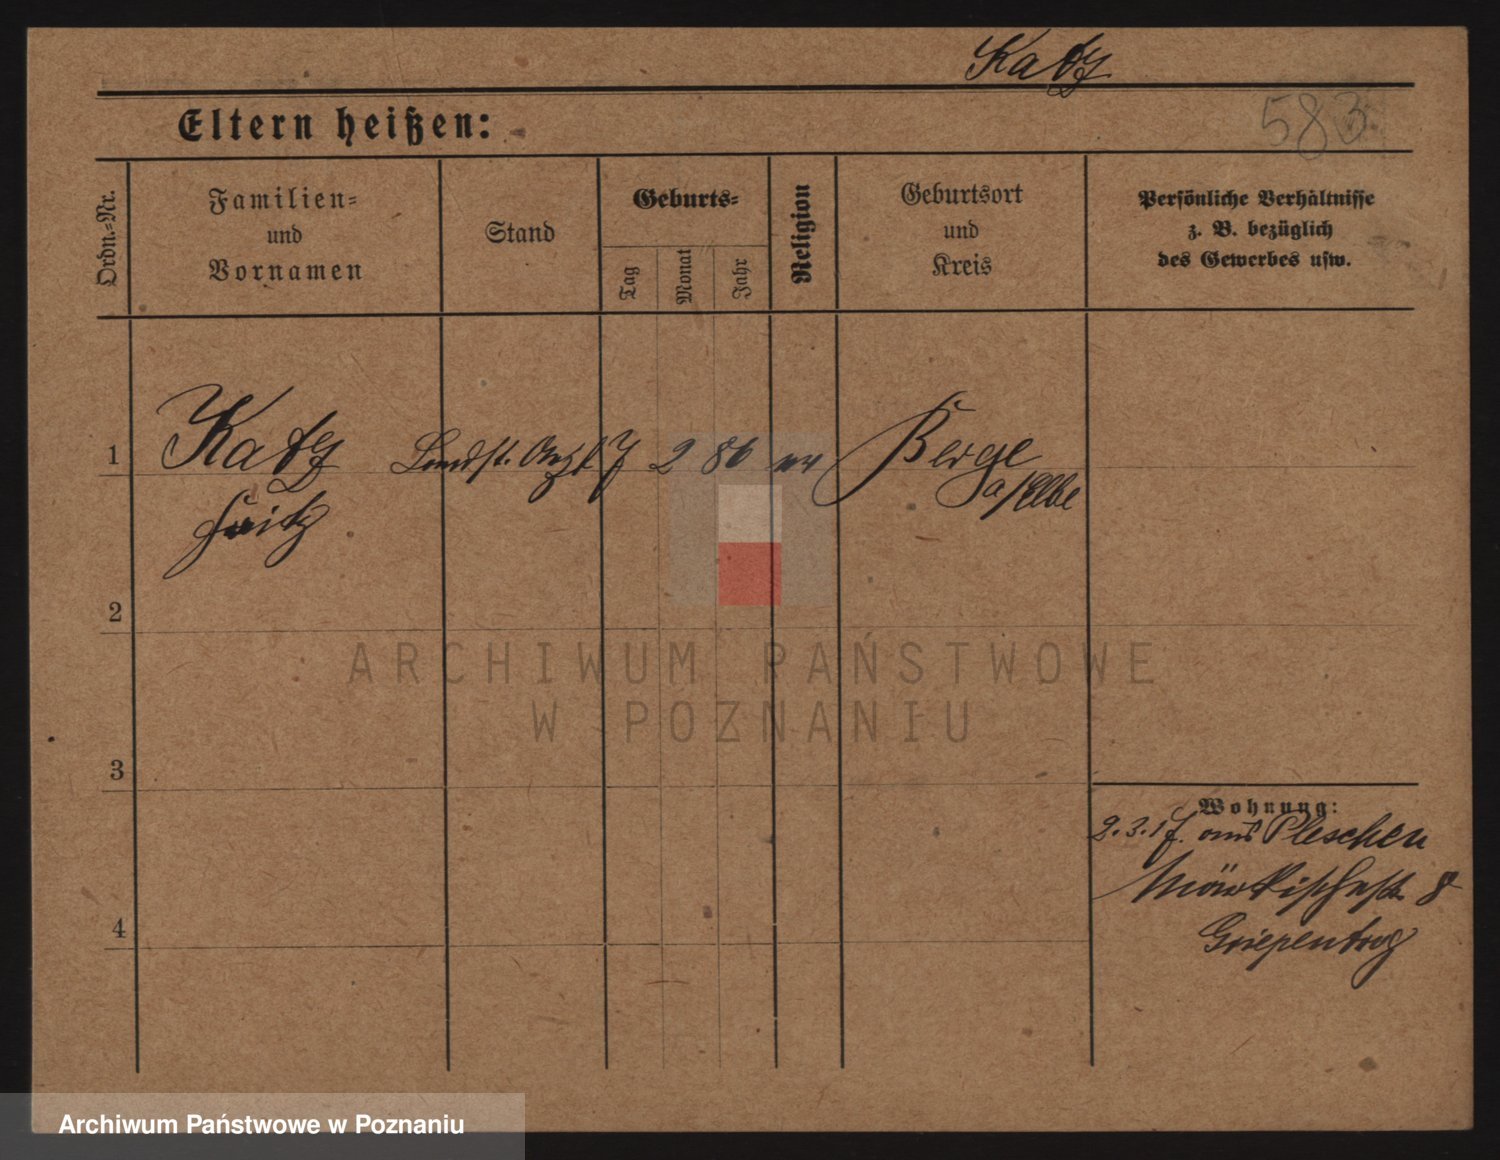 Katz
583
Eltern heißen:
Ordn.-Nr.
Familien-
und
Vornamen
Stand
Geburts-
Tag
Monat
Jahr
Religion
Geburtsort
und
Kreis
Persönliche Verhältnisse
z. B. bezüglich
des Gewerbes usw.
1
Katz
Fritz
Landst. Arzt
7
2
86
Berge
a/Elbe
2
3
4
Wohnung:
2.3.17. aus Pleschen
Märkischestr 8
Griepentrog
ARCHIWUM PAŃSTWOWE
W POZNANIU
Archiwum Państwowe w Poznaniu